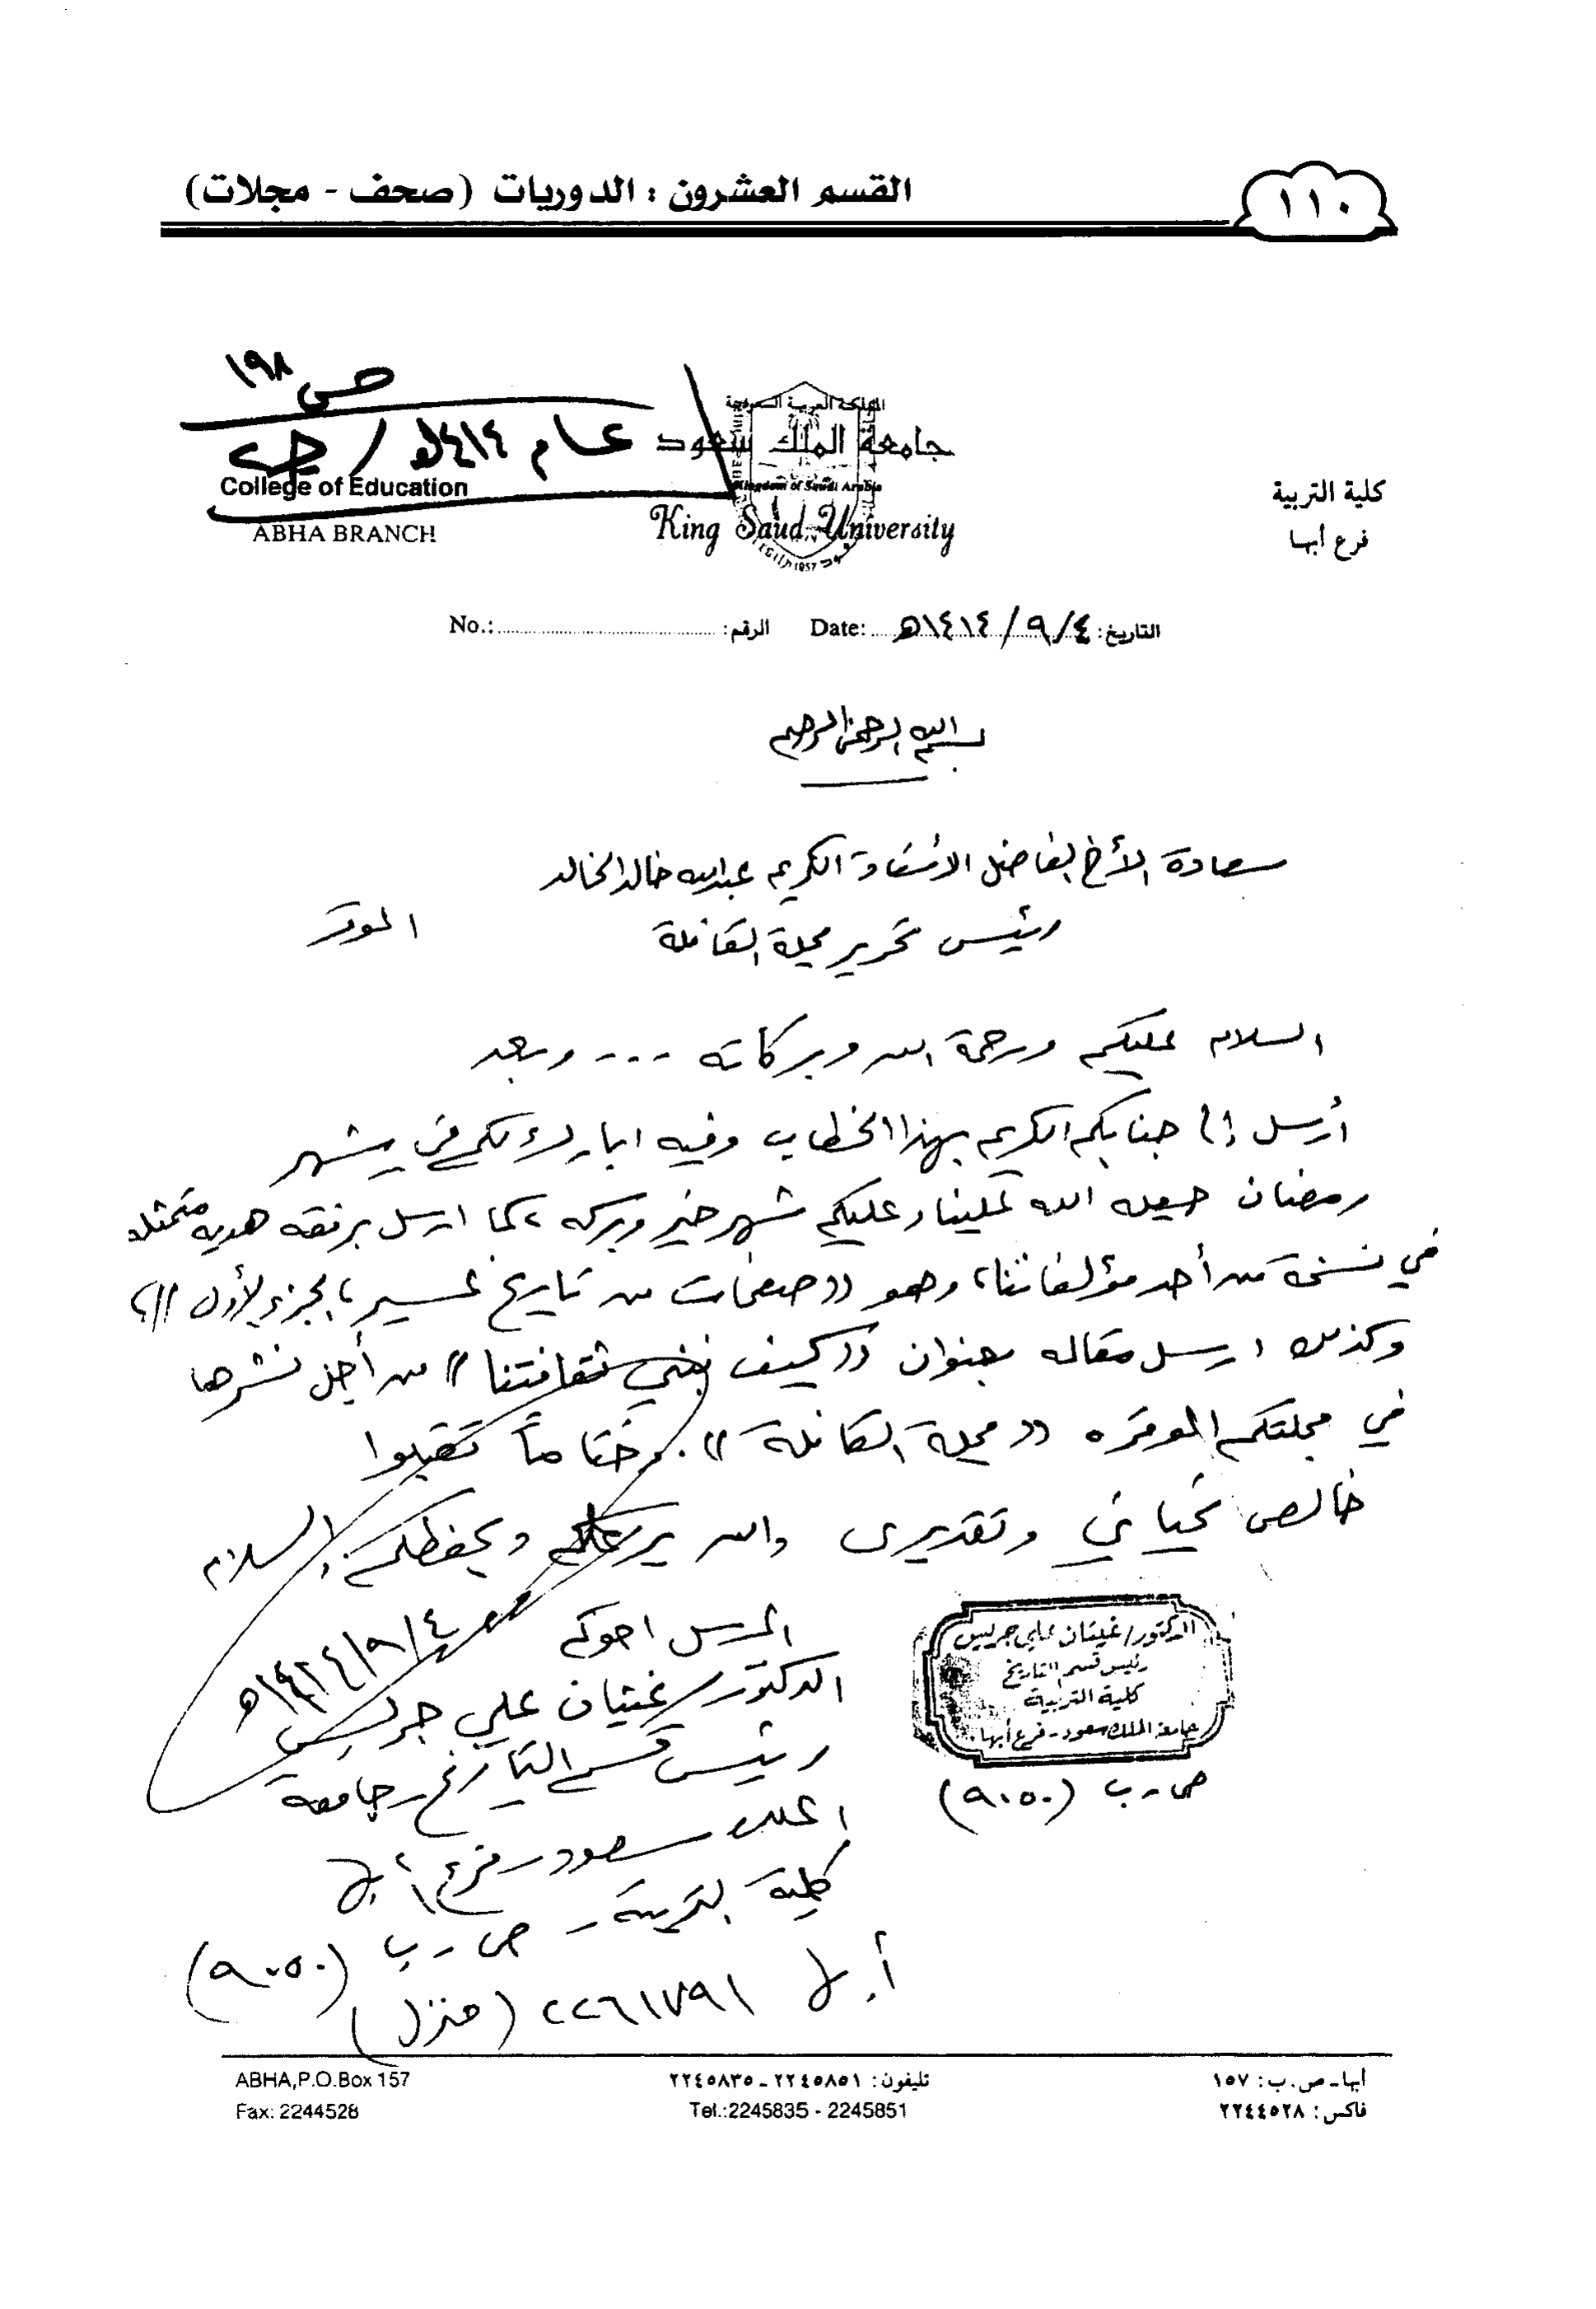 ١١٠
القسم العشرون : الدوريات (صحف - مجلات)
ص ١٩٨
عام ١٤١٤هـ / جـ٢
المملكة العربية السعودية
جامعة الملك سعود
Kingdom of Saudi Arabia
King Saud University
1957
College of Education
ABHA BRANCH
كلية التربية
فرع أبها
التاريخ: ٤/٩/١٤١٤هـ Date: الرقم: No.:
بسم الله الرحمن الرحيم
سعادة الأخ الفاضل الاستاذ الكريم عبدالله خالد الخالد
رئيس تحرير مجلة القافلة الموقر
السلام عليكم ورحمة الله وبركاته ... وبعد
أرسل إلى جنابكم الكريم بهذا الخطاب وفيه ابارك لكم في شهر
رمضان جعله الله علينا وعليكم شهر خير وبركه، كما ارسل برفقه هديه متمثله
في نسخة من أحد مؤلفاتنا، وهو ((صفحات من تاريخ عسير، الجزء الأول))،
وكذلك ارسل مقاله بعنوان ((كيف نبني ثقافتنا)) من أجل نشرها
في مجلتكم الموقره ((مجلة القافلة)). وختاماً تقبلوا
خالص تحياتي وتقديري والله يرعاكم ويحفظكم، والسلام
المرسل اخوكم
٤/٩/١٤١٤هـ
الدكتور/ غيثان علي جريس
رئيس قسم التاريخ - جامعة
الملك سعود - فرع أبها
كلية التربية - ص.ب (٩٠٥٠)
أبها ٢٢٦١٧٩١ (منزل)
الدكتور/ غيثان علي جريس
رئيس قسم التاريخ
كلية التربية
جامعة الملك سعود - فرع أبها
ص.ب (٩٠٥٠)
أبها - ص.ب: ١٥٧ تليفون: ٢٢٤٥٨٥١ - ٢٢٤٥٨٣٥ ABHA,P.O.Box 157
فاكس: ٢٢٤٤٥٢٨ Tel.:2245835 - 2245851 Fax: 2244528